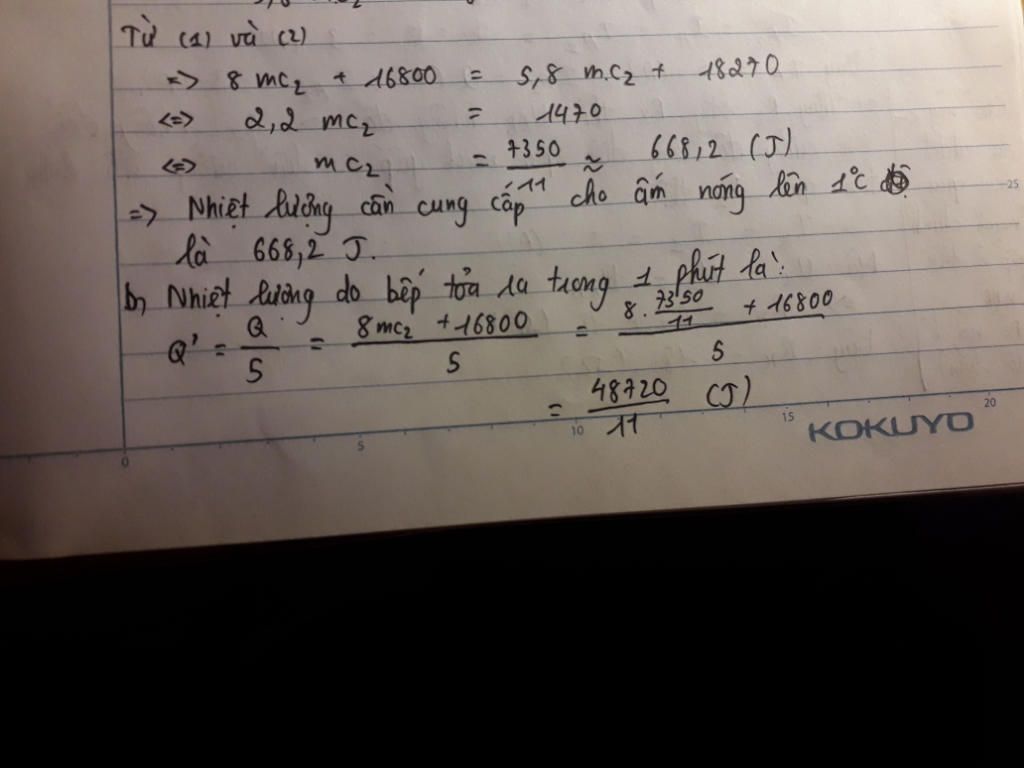 Từ (1) và (2)
=> 8 mc₂ + 16800 = 5,8 m.c₂ + 18270
<=> 2,2 mc₂ = 1470
<=> mc₂ = 7350/11 ≈ 668,2 (J)
=> Nhiệt lượng cần cung cấp cho ấm nóng lên 1°C
là 668,2 J.
b, Nhiệt lượng do bếp tỏa ra trong 1 phút là:
Q' = Q/5 = (8mc₂ + 16800)/5 = (8 . 7350/11 + 16800)/5
= 48720/11 (J)
KOKUYO
0 5 10 15 20
25